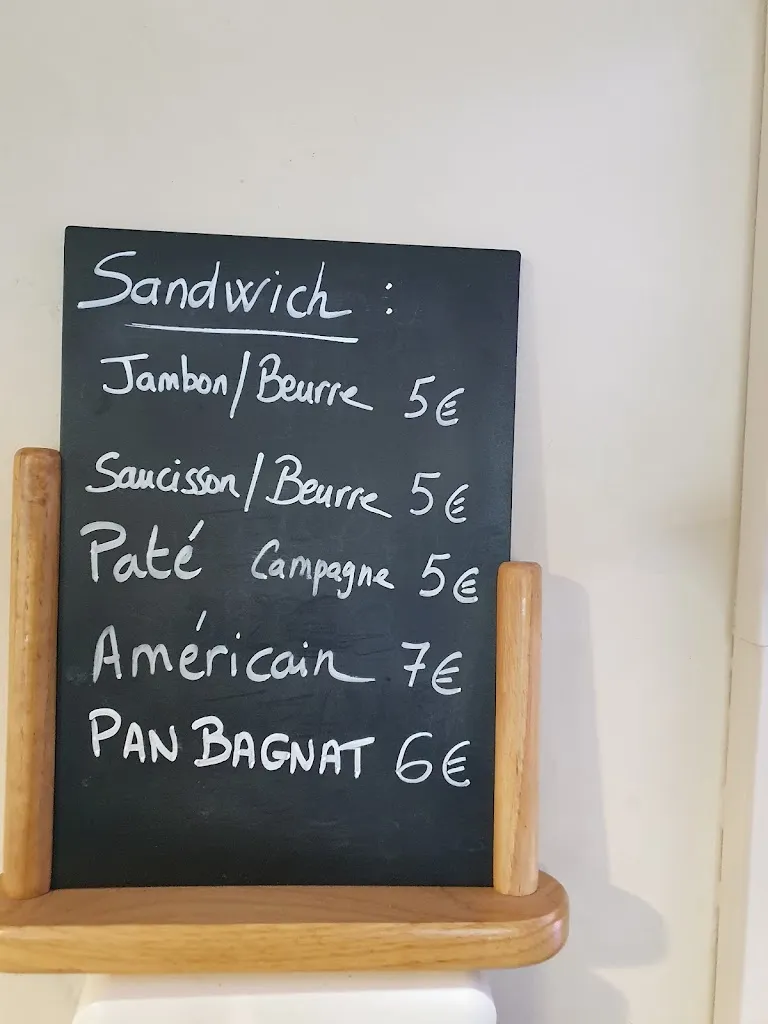 Sandwich :
Jambon/Beurre 5€
Saucisson/Beurre 5€
Paté Campagne 5€
Américain 7€
PAN BAGNAT 6€